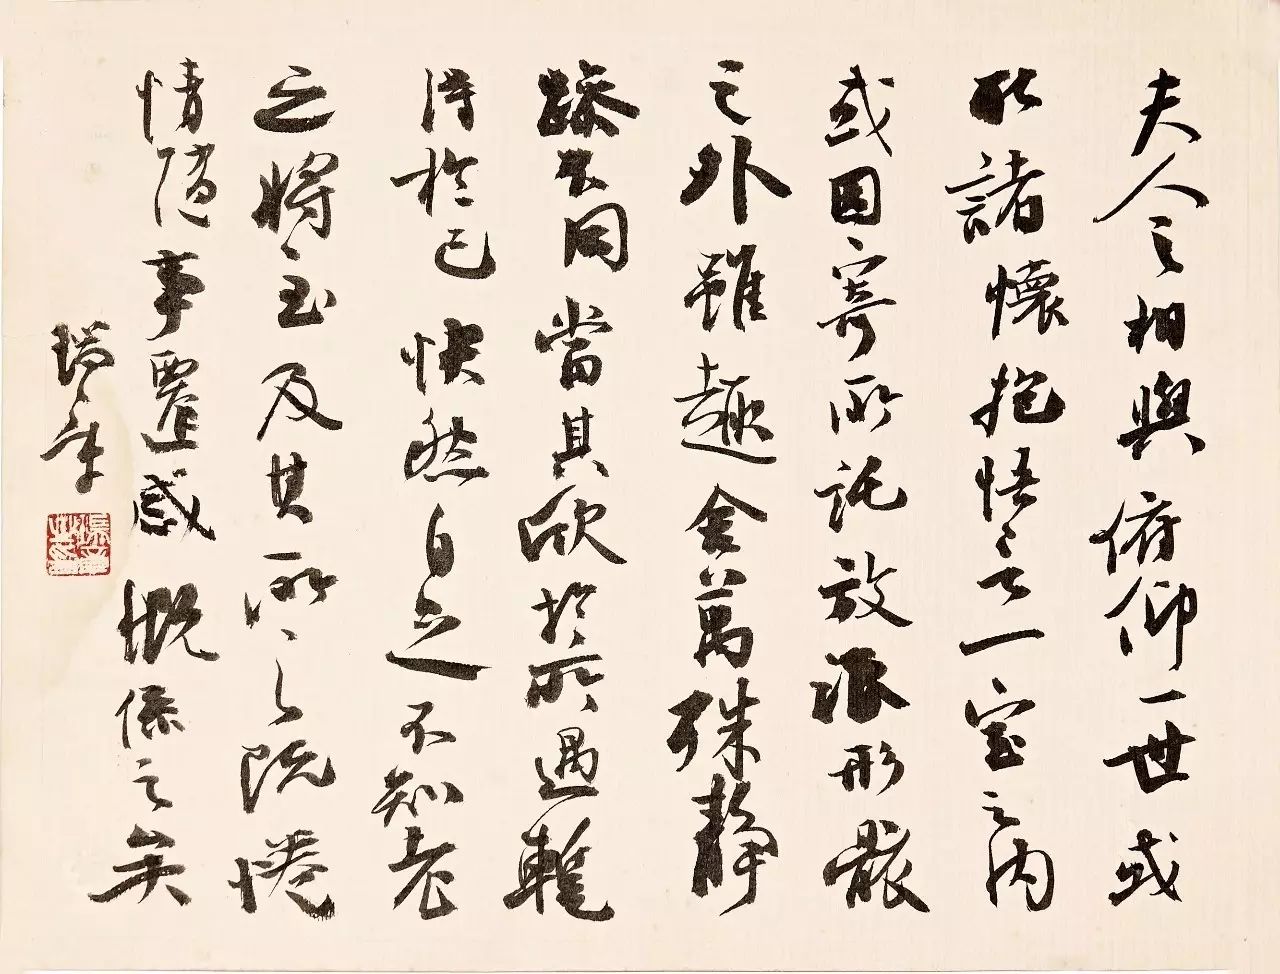 夫人之相與俯仰一世或
取諸懷抱悟言一室之内
或因寄所託放浪形骸
之外雖趣舍萬殊靜
躁不同當其欣於所遇暫
得於己快然自足不知老
之將至及其所之既惓
情隨事遷感慨係之矣
瑞